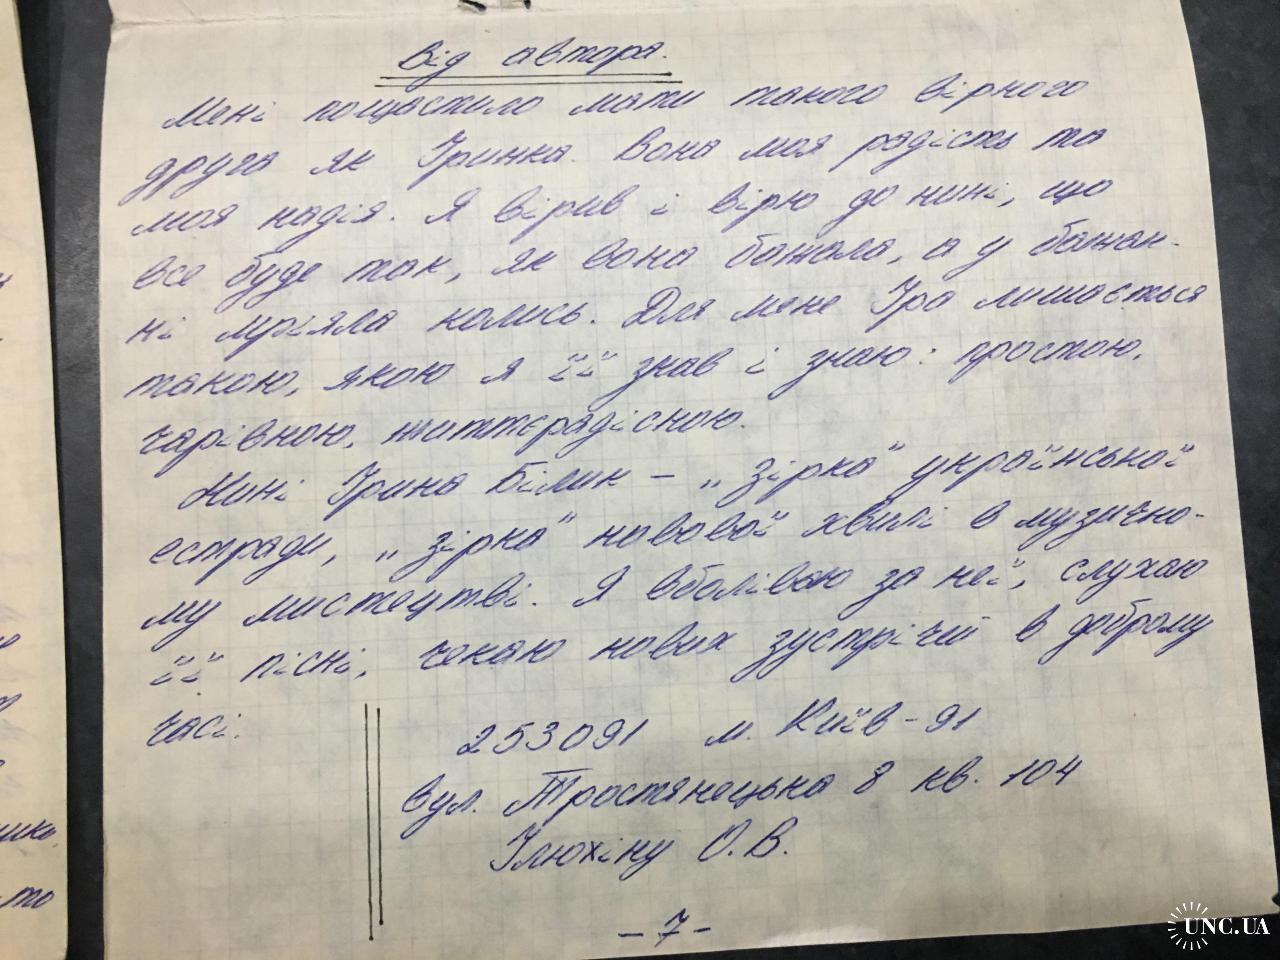 Від автора.
Мені пощастило мати такого вірного
друга як Іринка. Вона моя радість та
моя надія. Я вірив і вірю до нині, що
все буде так, як вона бажала, а у бажан-
ні мріяла колись. Для мене Іра лишається
такою, якою я її знав і знаю: простою,
чарівною, життєрадісною.
Нині Ірина Білик – „зірка" української
естради, „зірка" нової хвилі в музично-
му мистецтві. Я вболіваю за неї, слухаю
її пісні, чекаю нових зустрічей в доброму
часі.
253091 м. Київ-91
вул. Тростянецька 8 кв. 104
Ілюхіну О.В.
-7-
UNC.UA